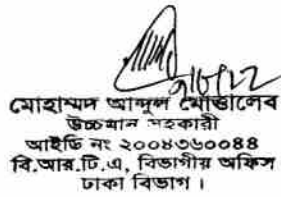 ৭/৮/১২
মোহাম্মদ আব্দুল মোত্তালেব
উচ্চমান সহকারী
আইডি নং ২০০৪৩৬০০৪৪
বি.আর.টি.এ, বিভাগীয় অফিস
ঢাকা বিভাগ।